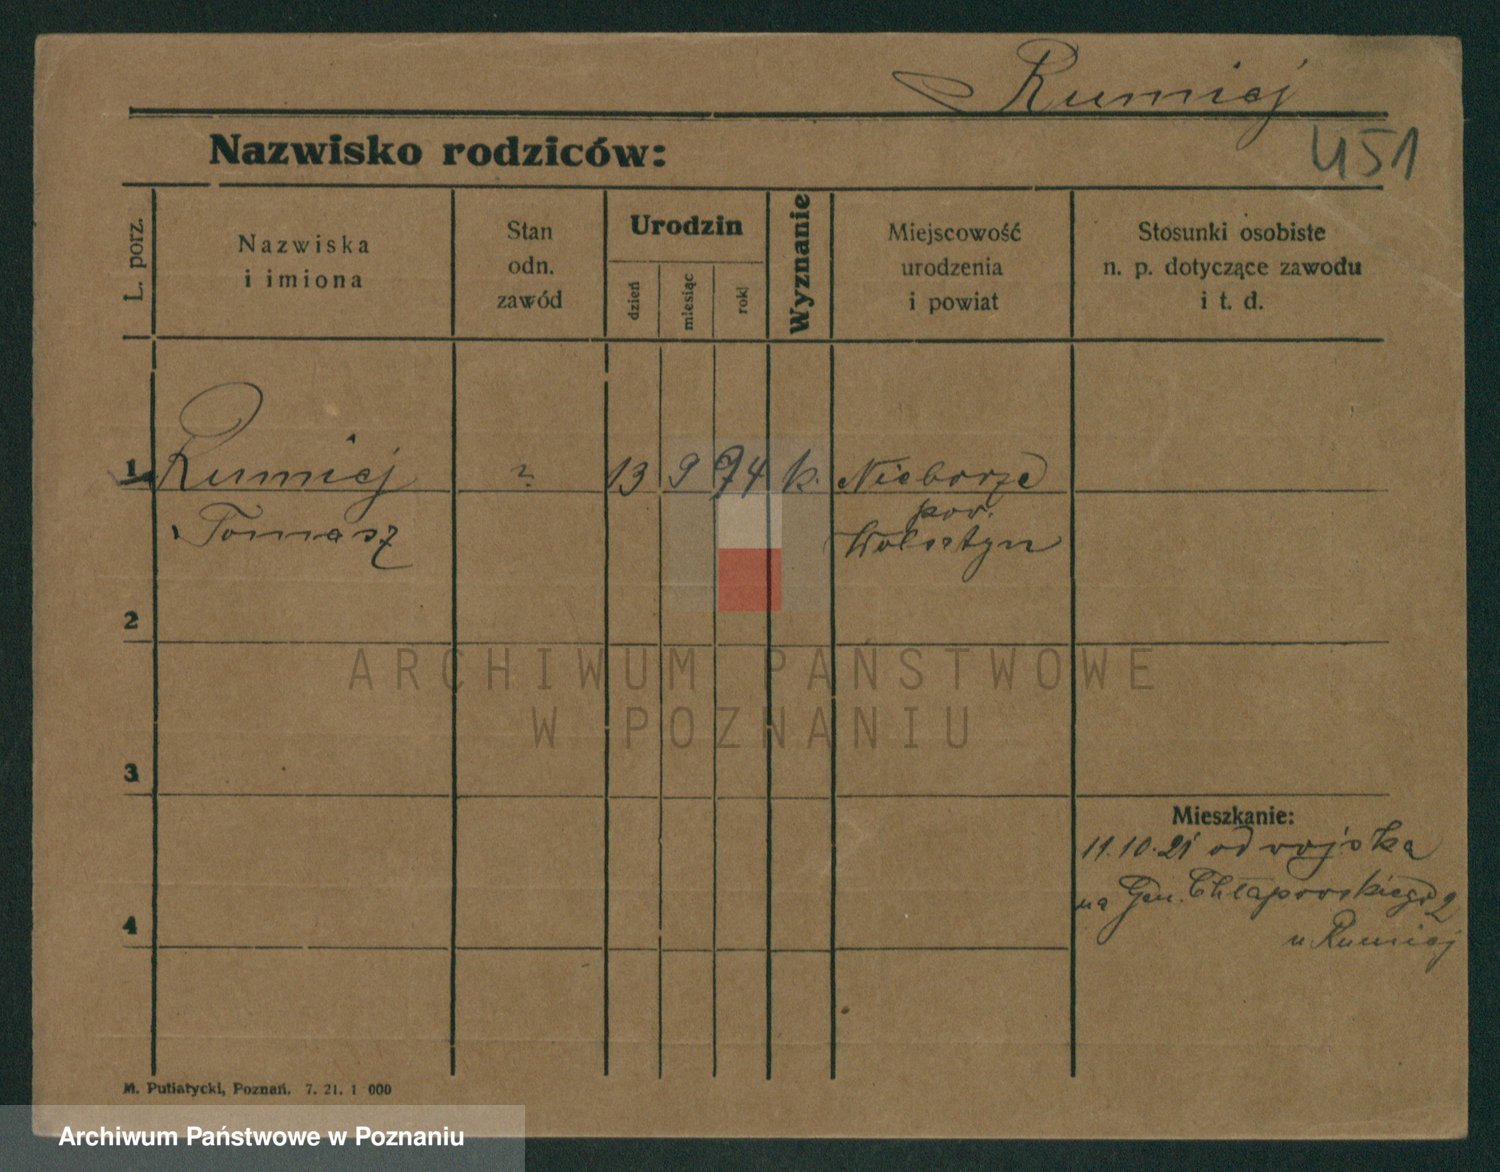 Rumiej
451
Nazwisko rodziców:
L. porz.
Nazwiska
i imiona
Stan
odn.
zawód
Urodzin
dzień
miesiąc
rok
Wyznanie
Miejscowość
urodzenia
i powiat
Stosunki osobiste
n. p. dotyczące zawodu
i t. d.
1 Rumiej ? 13 9 74 k. Nieborze
pow.
Tomasz Wolsztyn
2
ARCHIWUM PAŃSTWOWE
W POZNANIU
3
Mieszkanie:
11.10.21 od wojska
na Gen. Chłapowskiego 2
u Rumiej
4
M. Putiatycki, Poznań. 7. 21. 1 000
Archiwum Państwowe w Poznaniu